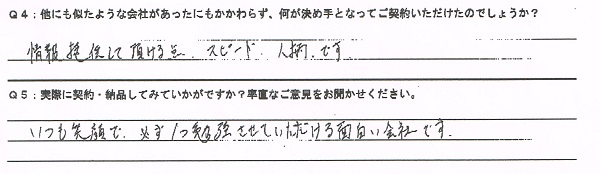 Q4：他にも似たような会社があったにもかかわらず、何が決め手となってご契約いただけたのでしょうか？
情報提供して頂ける点、スピード、人柄、です
Q5：実際に契約・納品してみていかがですか？率直なご意見をお聞かせください。
いつも笑顔で、必ず1つ勉強させていただける面白い会社です。